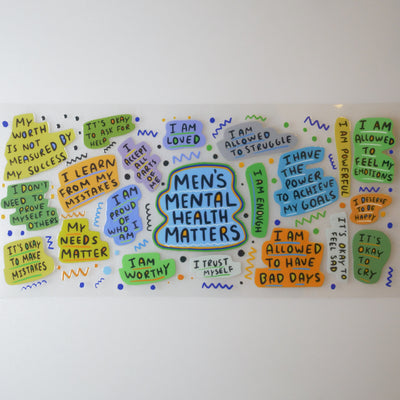 MY
WORTH
IS NOT
MEASURED BY
MY SUCCESS
IT'S OKAY
TO ASK FOR
HELP
I AM
LOVED
I AM
ALLOWED
TO STRUGGLE
I AM POWERFUL
I AM
ALLOWED
TO
FEEL MY
EMOTIONS
I LEARN
FROM MY
MISTAKES
I
ACCEPT
ALL
PARTS
OF
ME
I HAVE
THE
POWER
TO ACHIEVE
MY GOALS
I DON'T
NEED TO
PROVE
MYSELF TO
OTHERS
I AM
PROUD
OF
WHO I
AM
MEN'S
MENTAL
HEALTH
MATTERS
I AM ENOUGH
I DESERVE
TO BE
HAPPY
IT'S OKAY
TO MAKE
MISTAKES
MY
NEEDS
MATTER
I AM
WORTHY
I TRUST
MYSELF
I AM
ALLOWED
TO HAVE
BAD DAYS
IT'S OKAY TO
FEEL SAD
IT'S
OKAY
TO
CRY